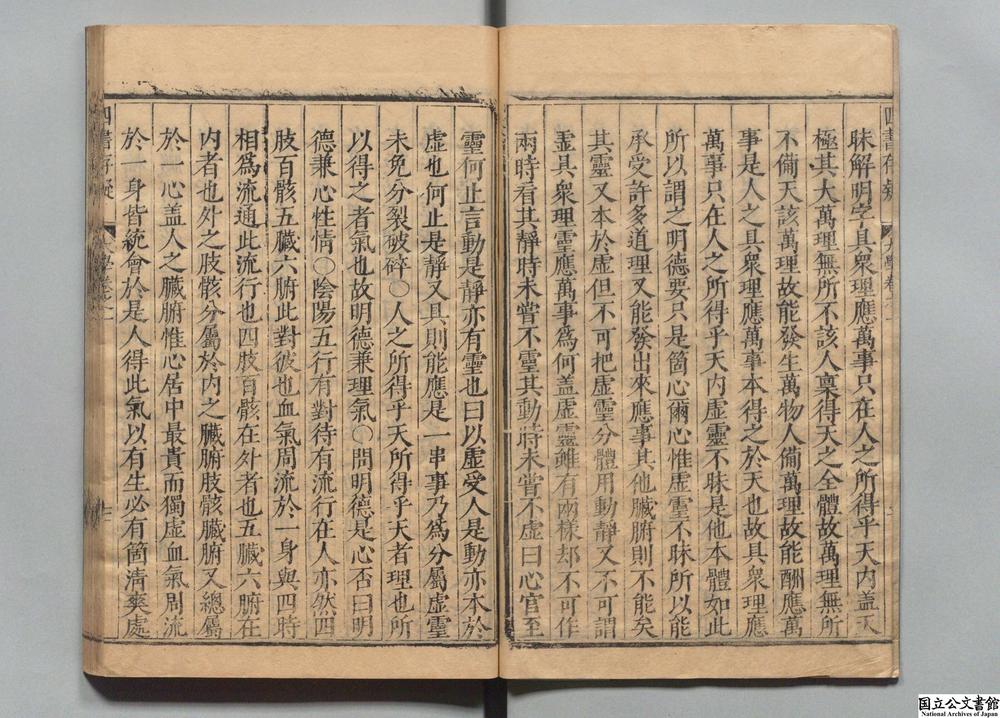 四書存疑
大學卷之一
昧解明字具衆理應萬事只在人之所得乎天内盖天
極其大萬理無所不該人稟得天之全體故萬理無所
不備天該萬理故能發生萬物人備萬理故能酬應萬
事是人之具衆理應萬事本得之於天也故具衆理應
萬事只在人之所得乎天内虚靈不昧是他本體如此
所以謂之明德要只是箇心爾心惟虚靈不昧所以能
承受許多道理又能發出來應事其他臟腑則不能矣
其靈又本於虚但不可把虚靈分體用動靜又不可謂
虚具衆理靈應萬事爲何盖虚靈雖有兩樣却不可作
兩時看其靜時未嘗不靈其動時未嘗不虚曰心官至
靈何止言動是靜亦有靈也曰以虚受人是動亦本於
虚也何止是靜又具則能應是一串事乃爲分屬虚靈
未免分裂破碎〇人之所得乎天所得乎天者理也所
以得之者氣也故明德兼理氣〇問明德是心否曰明
德兼心性情〇陰陽五行有對待有流行在人亦然四
肢百骸五臟六腑此對彼也血氣周流於一身與四時
相爲流通此流行也四肢百骸在外者也五臟六腑在
内者也外之肢骸分屬於内之臟腑肢骸臟腑又總屬
於一心盖人之臟腑惟心居中最貴而獨虚血氣周流
於一身皆統會於是人得此氣以有生必有箇清爽處
四書存疑
大學卷之一
国立公文書館
National Archives of Japan